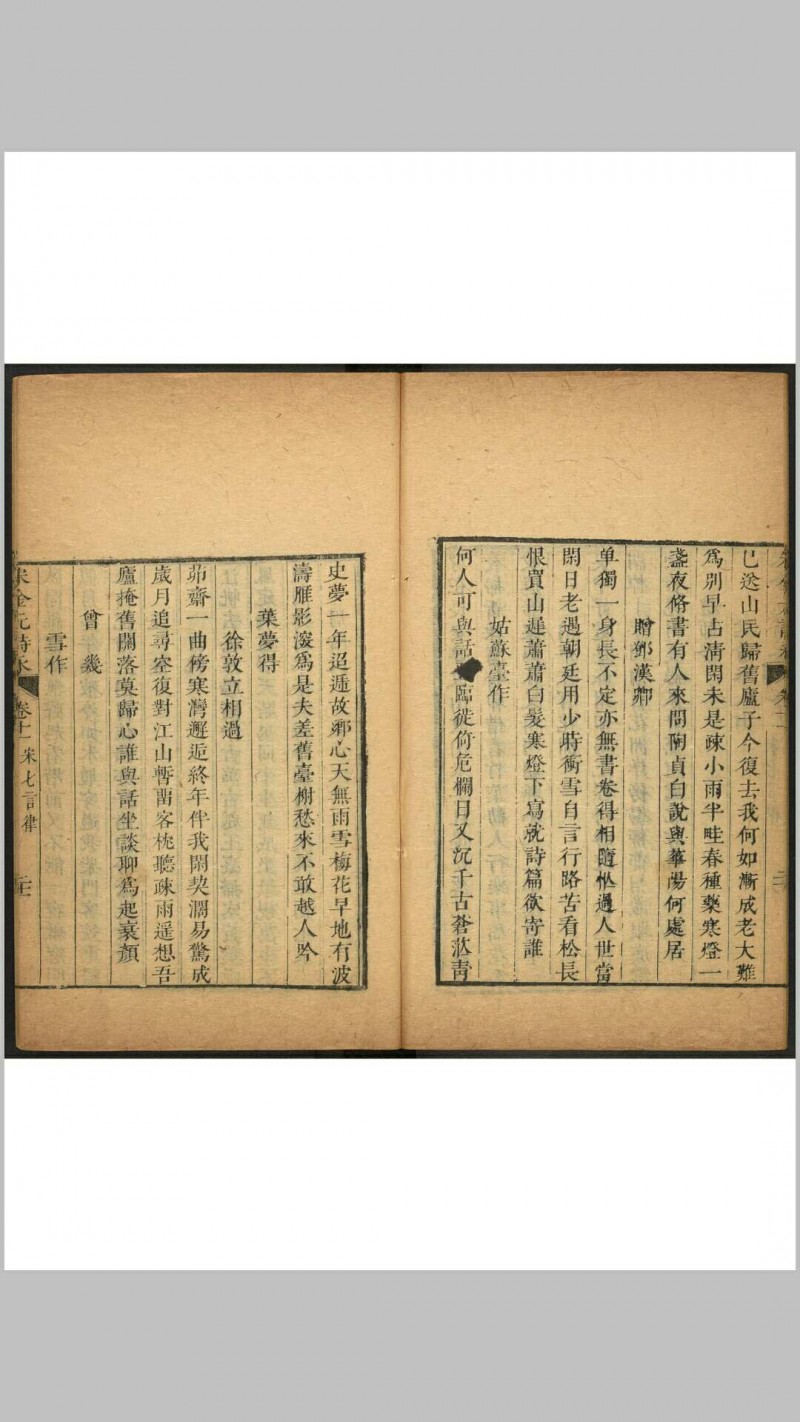 已送山民歸舊廬子今復去我何如漸成老大難
爲別早占清閑未是疎小雨半畦春種藥寒燈一
盞夜脩書有人來問陶貞白說與華陽何處居
贈鄧漢卿
单獨一身長不定亦無書卷得相隨怂過人世當
閑日老遇朝廷用少時衝雪自言行路苦看松長
恨買山遲蕭蕭白髮寒燈下寫就詩篇欲寄誰
姑蘇臺作
何人可與話登臨徙倚危欄日又沉千古蒼茫青
史夢一年迢遞故鄉心天無雨雪梅花早地有波
濤雁影深爲是夫差舊臺榭愁來不敢越人吟
葉夢得
徐敦立相過
茆齋一曲傍寒灣邂逅終年伴我閑契濶易驚成
歲月追尋空復對江山暫畱客枕聽疎雨遥想吾
廬掩舊關落莫歸心誰與話坐談聊爲起衰顏
曾幾
雪作
宋金元詩永 卷十一 宋七言律